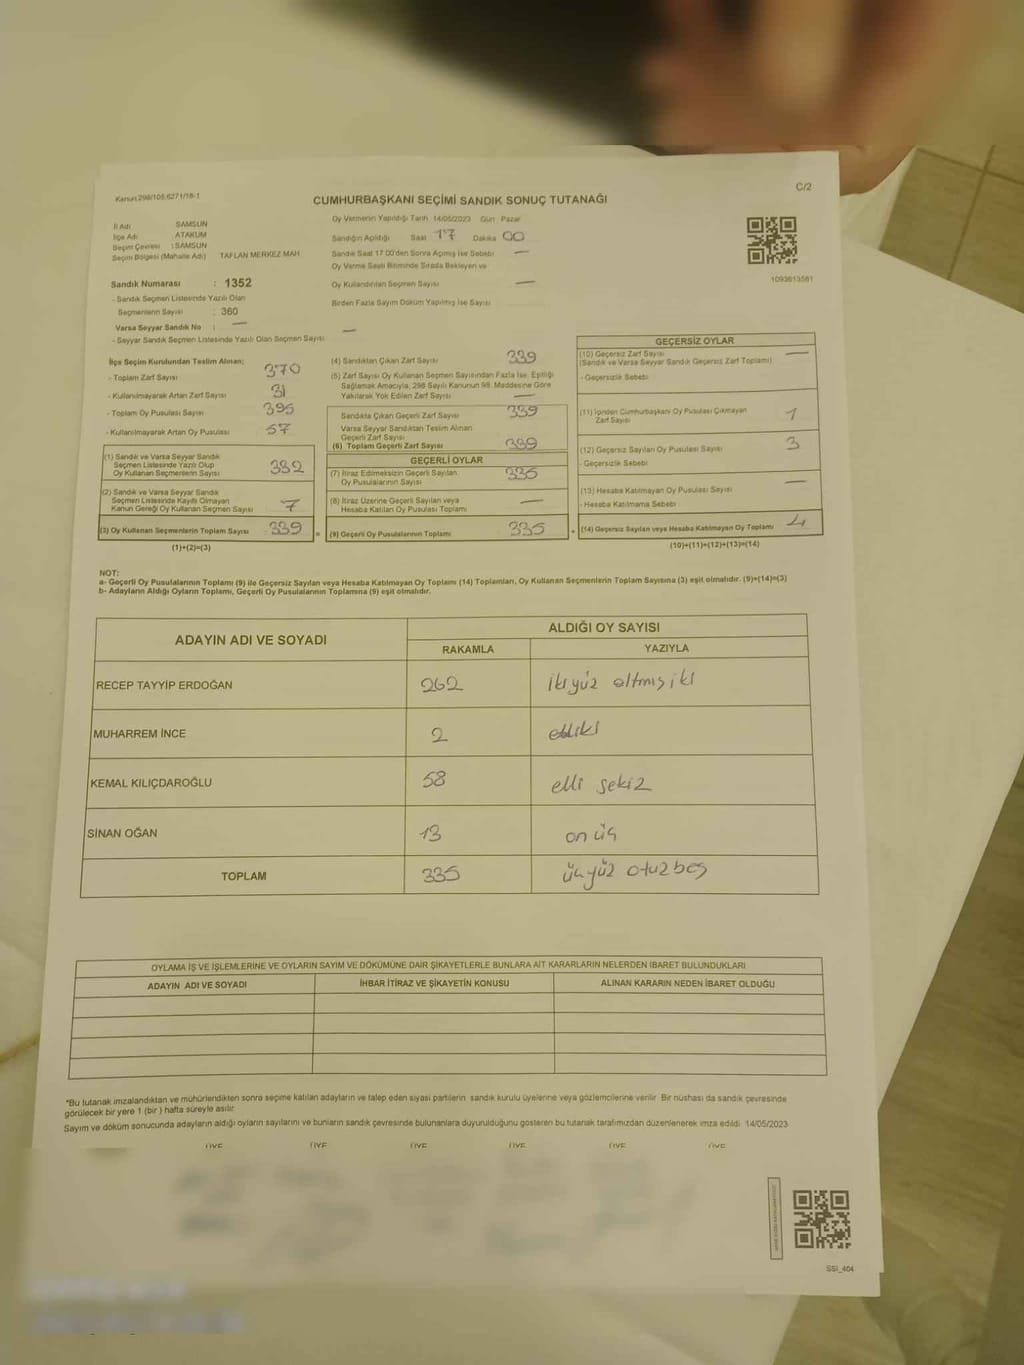 Kanun:298/105;6271/18-1
C/2
CUMHURBAŞKANI SEÇİMİ SANDIK SONUÇ TUTANAĞI
İl Adı SAMSUN
İlçe Adı : ATAKUM
Seçim Çevresi : SAMSUN
Seçim Bölgesi (Mahalle Adı) TAFLAN MERKEZ MAH
Sandık Numarası : 1352
- Sandık Seçmen Listesinde Yazılı Olan
Seçmenlerin Sayısı : 360
Varsa Seyyar Sandık No : —
- Seyyar Sandık Seçmen Listesinde Yazılı Olan Seçmen Sayısı —
Oy Vermenin Yapıldığı Tarih 14/05/2023 Gün Pazar
Sandığın Açıldığı Saat 17 Dakika 00
Sandık Saat 17:00'den Sonra Açılmış İse Sebebi —
Oy Verme Saati Bitiminde Sırada Bekleyen ve
Oy Kullandırılan Seçmen Sayısı —
Birden Fazla Sayım Döküm Yapılmış İse Sayısı
1093613581
İlçe Seçim Kurulundan Teslim Alınan;
- Toplam Zarf Sayısı 370
- Kullanılmayarak Artan Zarf Sayısı 31
- Toplam Oy Pusulası Sayısı 395
- Kullanılmayarak Artan Oy Pusulası 57
(1) Sandık ve Varsa Seyyar Sandık
Seçmen Listesinde Yazılı Olup
Oy Kullanan Seçmenlerin Sayısı 332
(2) Sandık ve Varsa Seyyar Sandık
Seçmen Listesinde Kayıtlı Olmayan
Kanun Gereği Oy Kullanan Seçmen Sayısı 7
(3) Oy Kullanan Seçmenlerin Toplam Sayısı 339
(1)+(2)=(3)
(4) Sandıktan Çıkan Zarf Sayısı 339
(5) Zarf Sayısı Oy Kullanan Seçmen Sayısından Fazla İse, Eşitliği
Sağlamak Amacıyla, 298 Sayılı Kanunun 98. Maddesine Göre
Yakılarak Yok Edilen Zarf Sayısı —
Sandıkta Çıkan Geçerli Zarf Sayısı 339
Varsa Seyyar Sandıktan Teslim Alınan
Geçerli Zarf Sayısı
(6) Toplam Geçerli Zarf Sayısı 339
GEÇERLİ OYLAR
(7) İtiraz Edilmeksizin Geçerli Sayılan
Oy Pusulalarının Sayısı 335
(8) İtiraz Üzerine Geçerli Sayılan veya
Hesaba Katılan Oy Pusulası Toplamı —
= (9) Geçerli Oy Pusulalarının Toplamı 335
GEÇERSİZ OYLAR
(10) Geçersiz Zarf Sayısı —
(Sandık ve Varsa Seyyar Sandık Geçersiz Zarf Toplamı)
- Geçersizlik Sebebi
(11) İçinden Cumhurbaşkanı Oy Pusulası Çıkmayan
Zarf Sayısı 1
(12) Geçersiz Sayılan Oy Pusulası Sayısı 3
- Geçersizlik Sebebi
(13) Hesaba Katılmayan Oy Pusulası Sayısı —
- Hesaba Katılmama Sebebi
+ (14) Geçersiz Sayılan veya Hesaba Katılmayan Oy Toplamı 4
(10)+(11)+(12)+(13)=(14)
NOT:
a- Geçerli Oy Pusulalarının Toplamı (9) ile Geçersiz Sayılan veya Hesaba Katılmayan Oy Toplamı (14) Toplamları, Oy Kullanan Seçmenlerin Toplam Sayısına (3) eşit olmalıdır. (9)+(14)=(3)
b- Adayların Aldığı Oyların Toplamı, Geçerli Oy Pusulalarının Toplamına (9) eşit olmalıdır.
ADAYIN ADI VE SOYADI ALDIĞI OY SAYISI
RAKAMLA YAZIYLA
RECEP TAYYİP ERDOĞAN 262 ikiyüz altmış iki
MUHARREM İNCE 2 iki
KEMAL KILIÇDAROĞLU 58 elli sekiz
SİNAN OĞAN 13 on üç
TOPLAM 335 üçyüz otuzbeş
OYLAMA İŞ VE İŞLEMLERİNE VE OYLARIN SAYIM VE DÖKÜMÜNE DAİR ŞİKAYETLERLE BUNLARA AİT KARARLARIN NELERDEN İBARET BULUNDUKLARI
ADAYIN ADI VE SOYADI İHBAR İTİRAZ VE ŞİKAYETİN KONUSU ALINAN KARARIN NEDEN İBARET OLDUĞU
*Bu tutanak imzalandıktan ve mühürlendikten sonra seçime katılan adayların ve talep eden siyasi partilerin sandık kurulu üyelerine veya gözlemcilerine verilir. Bir nüshası da sandık çevresinde
görülecek bir yere 1 (bir) hafta süreyle asılır.
Sayım ve döküm sonucunda adayların aldığı oyların sayılarını ve bunların sandık çevresinde bulunanlara duyurulduğunu gösteren bu tutanak tarafımızdan düzenlenerek imza edildi. 14/05/2023
ÜYE ÜYE ÜYE ÜYE ÜYE ÜYE
SSI_404